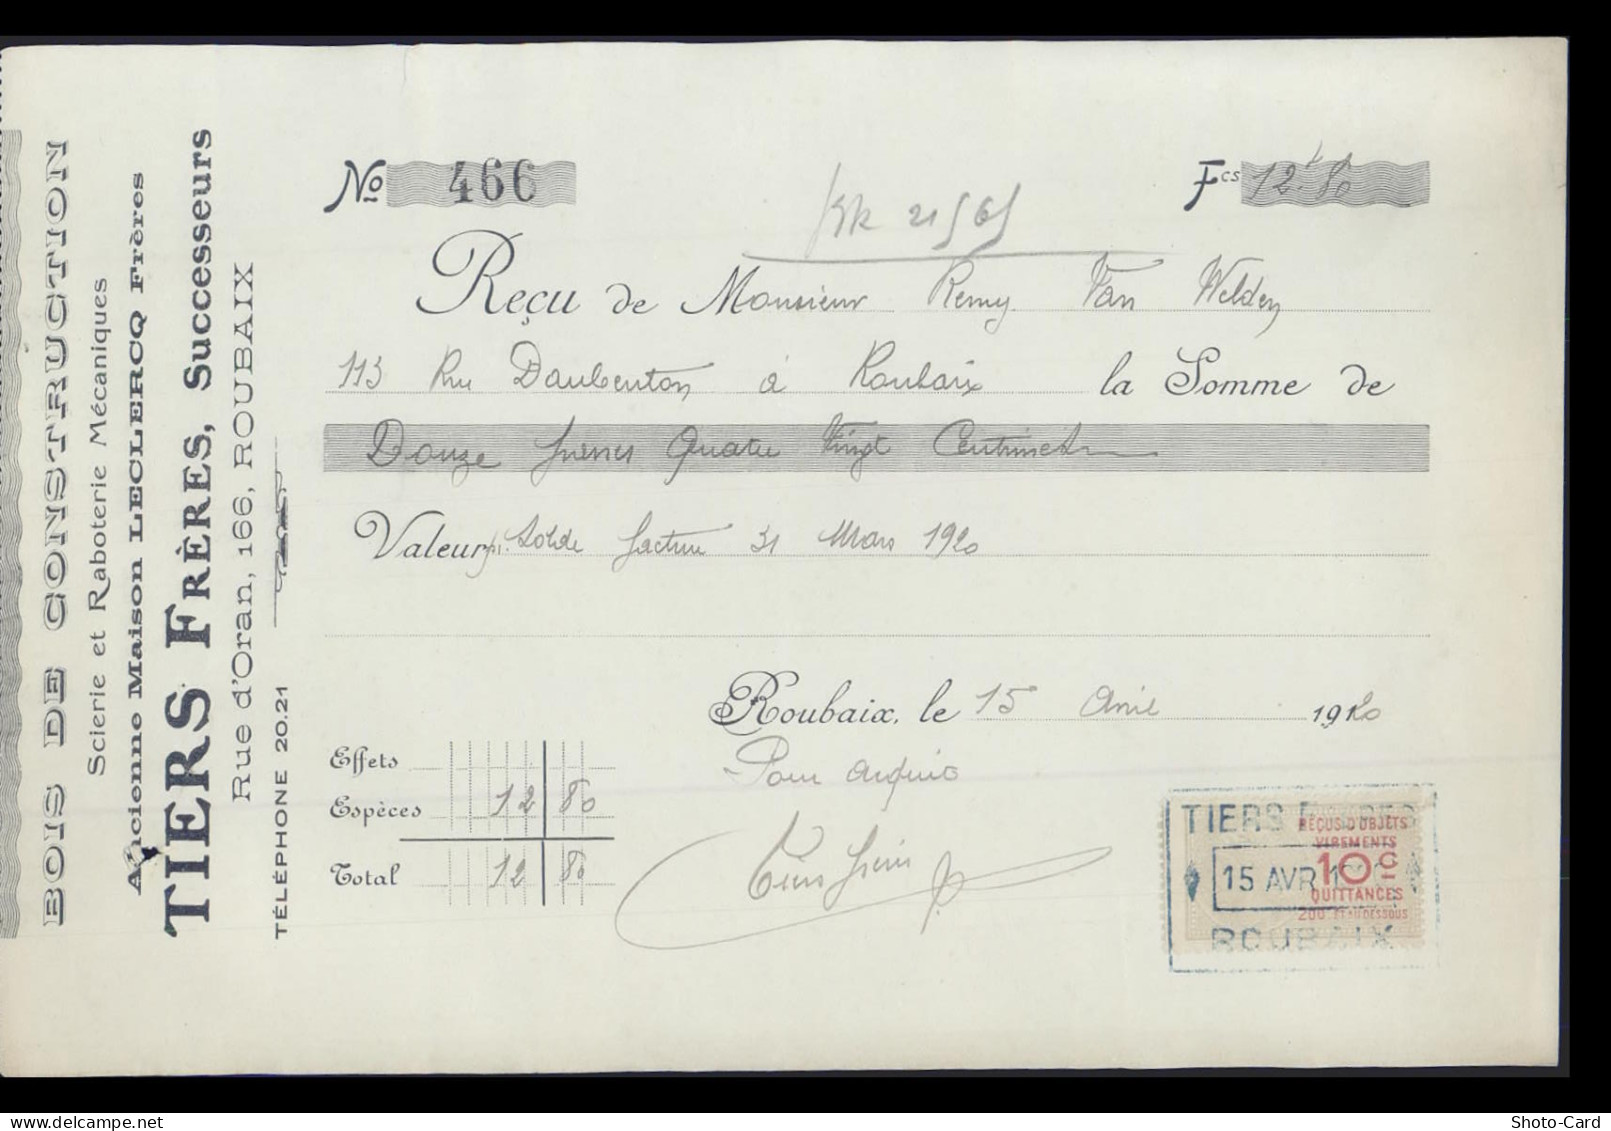 BOIS DE CONSTRUCTION
Scierie et Raboterie Mécaniques
Ancienne Maison LECLERCQ Frères
TIERS FRÈRES, Successeurs
Rue d'Oran, 166, ROUBAIX
TÉLÉPHONE 20.21
No 466 Fcs 12f.80
Reçu de Monsieur Remy Van Welden
113 Rue Daubenton à Roubaix la Somme de
Douze francs Quatre Vingt Centimes
Valeur pr. Solde facture 31 Mars 1920
Roubaix, le 15 Avril 1920
Pour acquit
Tiers frères
Effets
Espèces 12 80
Total 12 80
TIERS FRERES
REÇUS D'OBJETS
VIREMENTS
10c
15 AVR 1920
QUITTANCES
200f ET AU DESSOUS
ROUBAIX
www.delcampe.net
Shoto-Card